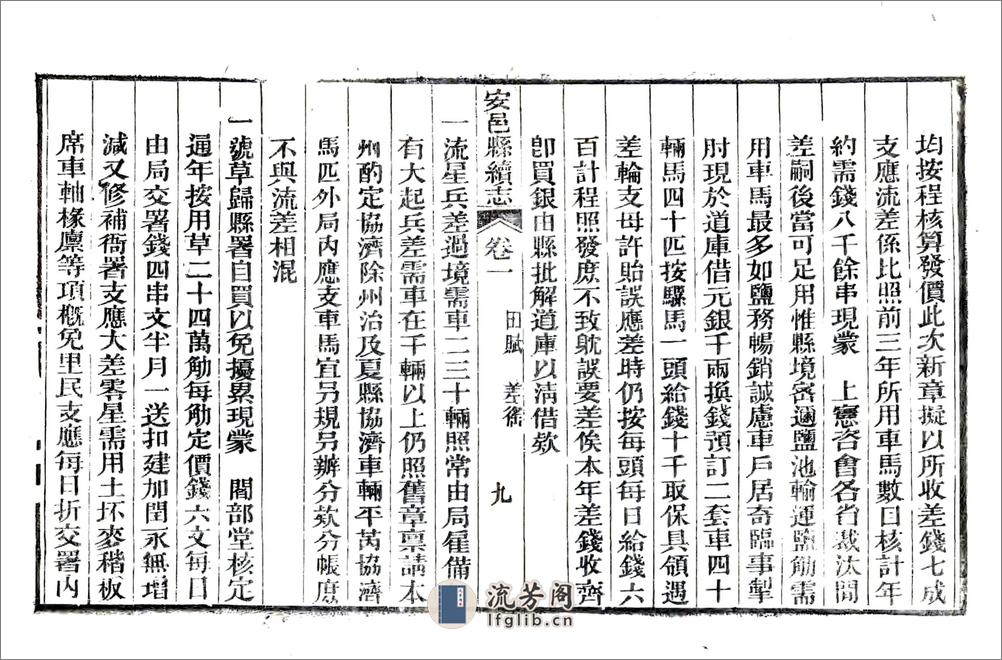 均按程核算發價此次新章擬以所收差錢七成
支應流差係比照前三年所用車馬數目核計年
約需錢八千餘串現蒙 上憲咨會各省裁汰閒
差嗣後當可足用惟縣境密邇鹽池輸運鹽觔需
用車馬最多如鹽務暢銷誠慮車戶居奇臨事掣
肘現於道庫借元銀千兩換錢預訂二套車四十
輛馬四十匹按騾馬一頭給錢十千取保具領遇
差輪支毋許貽誤應差時仍按每頭每日給錢六
百計程照發庶不致躭誤要差俟本年差錢收齊
卽買銀由縣批解道庫以淸借欵
安邑縣續志 卷一 田賦 差徭 九
一流星兵差過境需車二三十輛照常由局雇備
有大起兵差需車在千輛以上仍照舊章禀請本
州酌定協濟除州治及夏縣協濟車輛平芮協濟
馬匹外局內應支車馬宜另規另辦分欵分帳庶
不與流差相混
一號草歸縣署自買以免擾累現蒙 閻部堂核定
通年按用草二十四萬觔每觔定價錢六文每日
由局交署錢四串文半月一送扣建加閏永無增
減又修補衙署支應大差零星需用土坯麥稭板
席車軸椽廪等項槪免里民支應每日折交署內
流芳阁
lfglib.cn